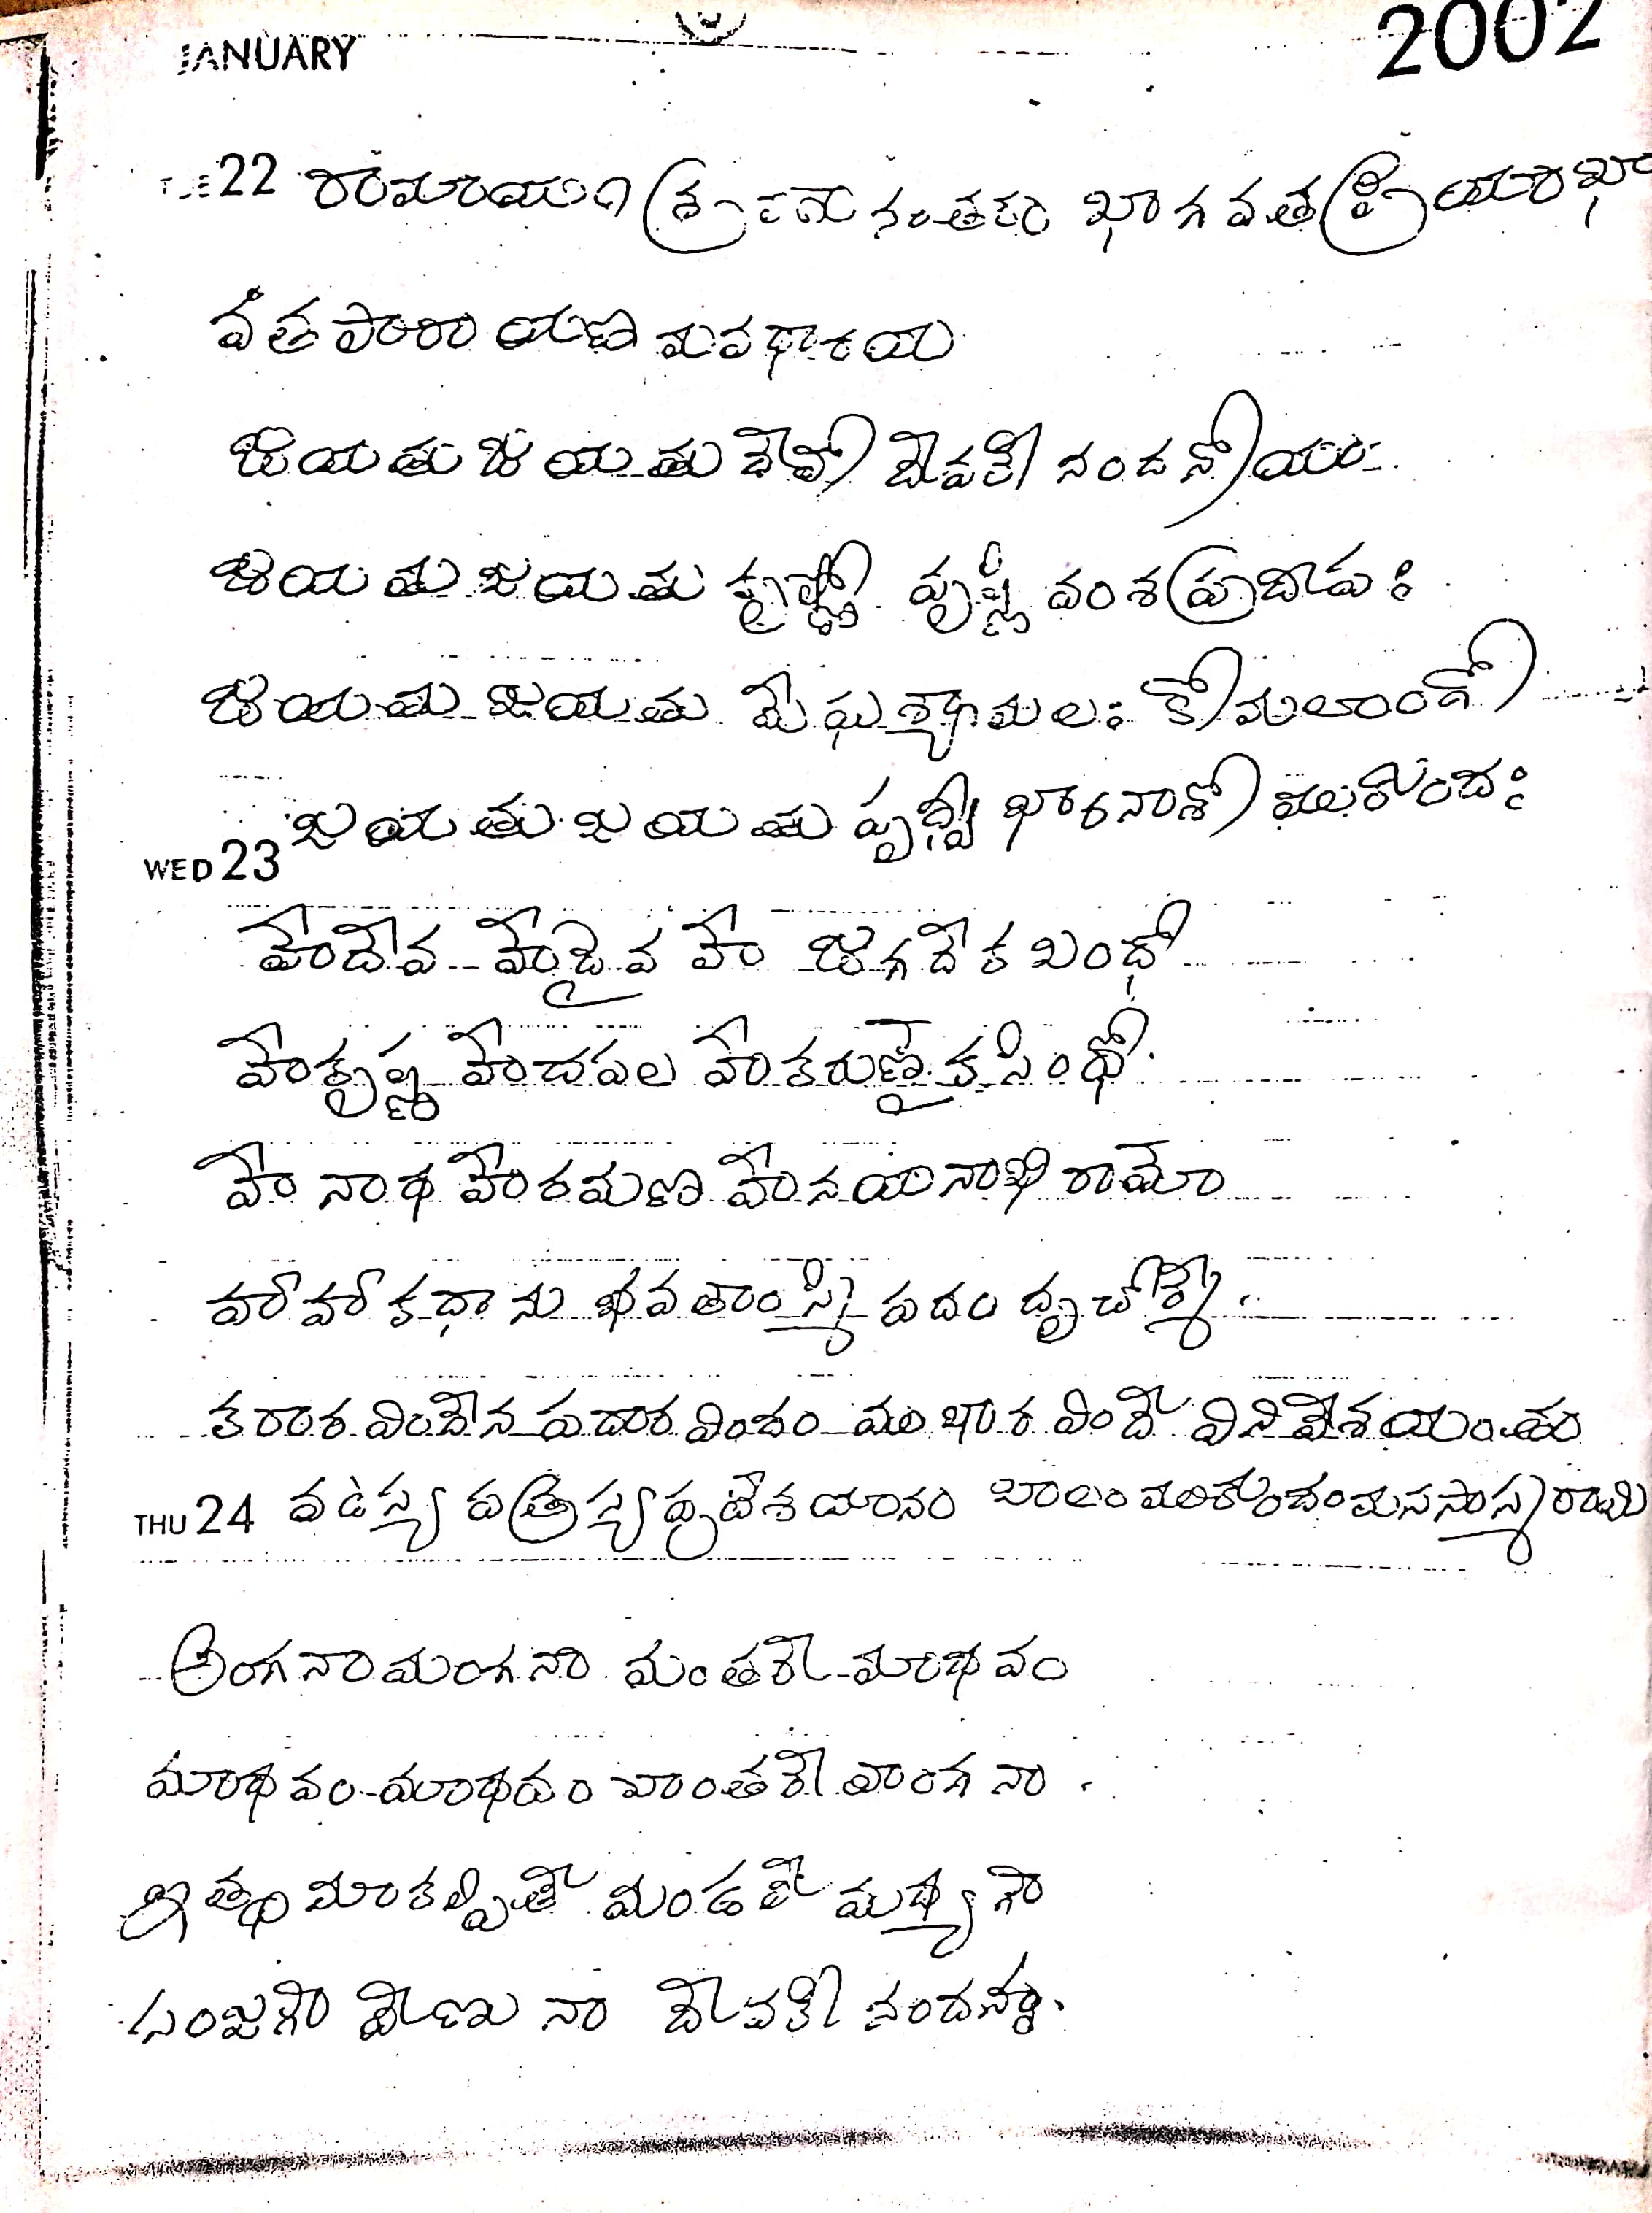 JANUARY 2002
TUE 22 రామాయణ శ్రవణా నంతరం భాగవతప్రియాభా
వత పారాయణ మవధారయ
జయతు జయతు దేవో దేవకీ నందనోయం
జయతు జయతు కృష్ణో వృష్ణి వంశప్రదీపః
జయతు జయతు మేఘశ్యామలః కోమలాంగో
జయతు జయతు పృధ్వీ భారనాశో ముకుందః
WED 23
హేదేవ హేదైవ హే జగదేక బంధో
హేకృష్ణ హేచపల హేకరుణైక సింధో
హే నాథ హేరమణ హేనయనాభి రామో
హా హా కదా ను భవతాంస్మి పదం దృచోర్శ్మే.
కరార విందేన పదార విందం ముఖార విందే వినివేశయంతం
THU 24 వటస్య పత్రస్య పృటేశయానం బాలం ముకుందం మనసాస్మరామి
అంగనా మంగనా మంతరే మాధవం
మాధవం మాధవం చాంతరే వాంగనా.
ఇత్థ మాకల్పితే మండలే మధ్యగో
సంజగౌ వేణు నా దేవకీ నందనః.